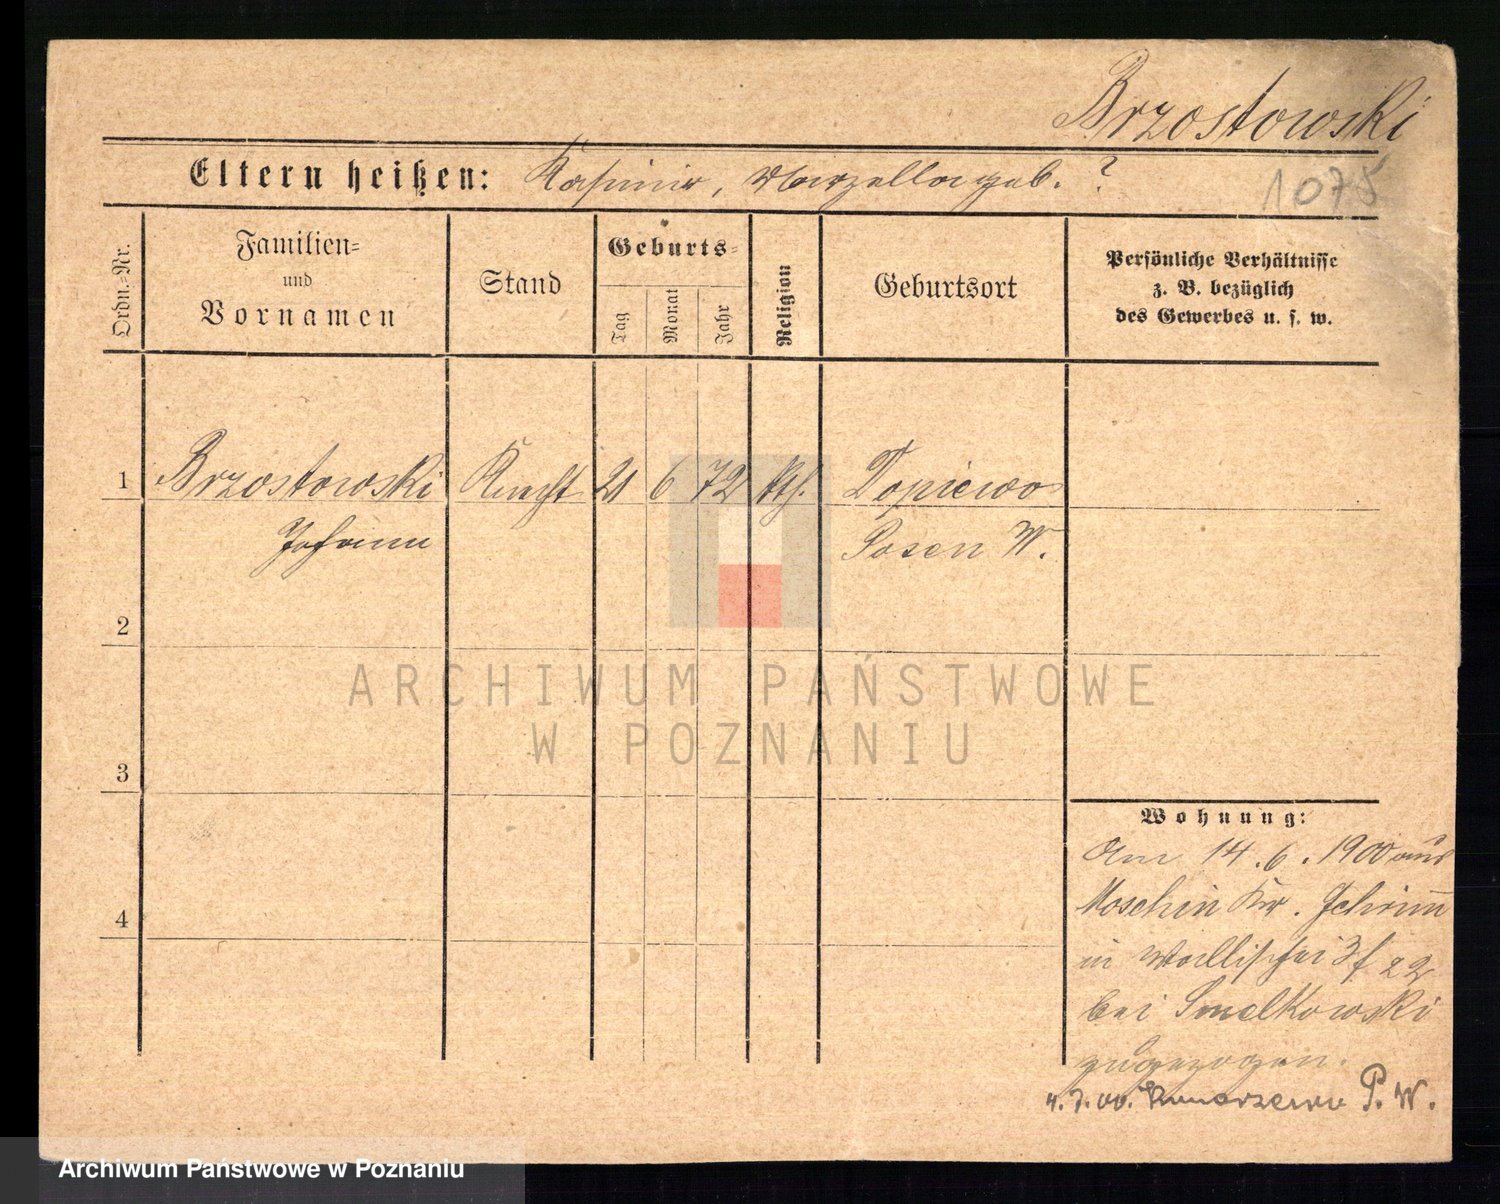 Brzostowski
Eltern heißen: Kasimir, Marzella geb. ?
1075
Ordn.-Nr.
Familien-
und
Vornamen
Stand
Geburts-
Tag
Monat
Jahr
Religion
Geburtsort
Persönliche Verhältnisse
z. B. bezüglich
des Gewerbes u. s. w.
1 Brzostowski Knecht 21 6 72 kth. Dopiewo
Johann Posen W.
2
3
4
ARCHIWUM PAŃSTWOWE
W POZNANIU
Wohnung:
Am 14. 6. 1900 aus
Moschin Kr. Schrimm
in Wallischei 22
bei Smelkowski
zugezogen.
4.7.00. P. W.
Archiwum Państwowe w Poznaniu